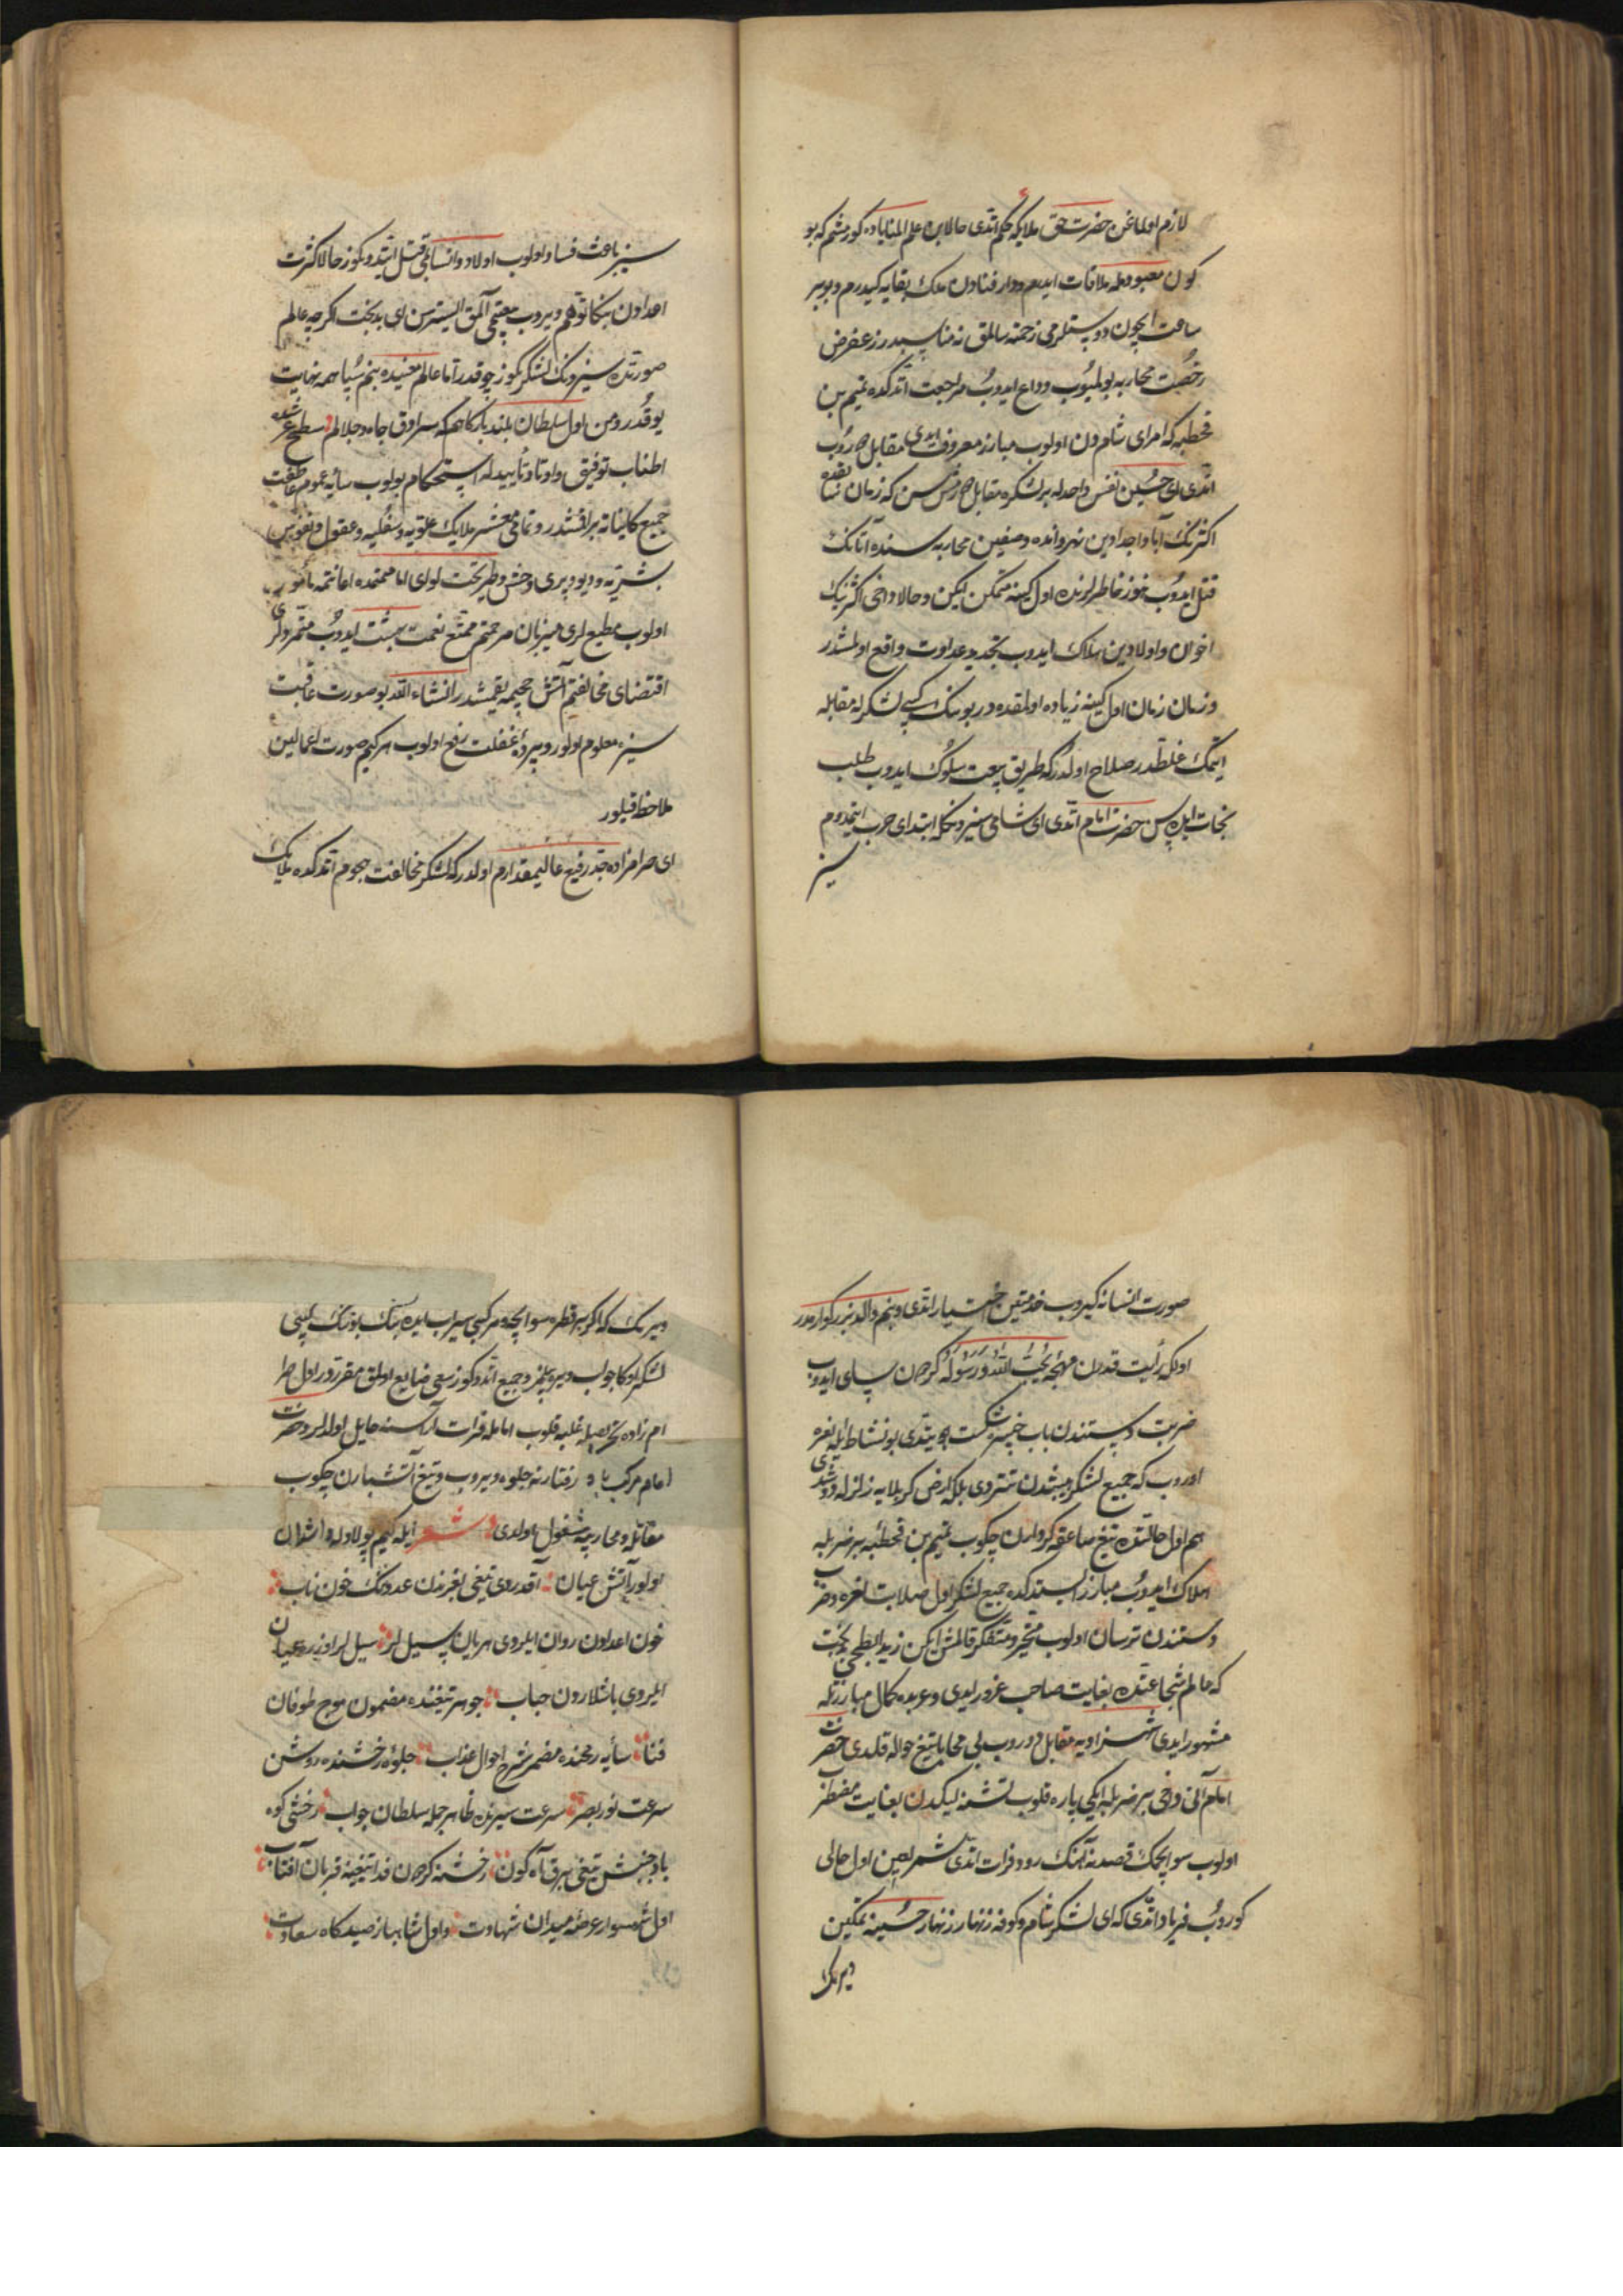 لازم اولماغن حضرت حق ملائكه حكم اتدی حالا بن علم المنایاده كورمشم كه بو
كون معبودمله ملاقات ایدرم و دار فنادن ملك بقایه كیدرم و بو بیر
ساعت ایچون دوستلرمی زحمته سالمق نه مناسبدر زعفر ض
رخصت محاربه بولمیوب وداع ایدوب مراجعت اتدكده تمیم بن
قحطبه كه امرای شامدن اولوب مبارز معروف ایدی مقابل دوروب
اتدی ای حسین نفس واحدله بر لشكره مقابل دوررسن كه زمان سابقده
اكثرنك آبا و اجدادین نهروانده و صفین محاربه سنده آتانك
قتل ایدوب هنوز خاطرلرنده اول كینه متمكن ایكن و حالا داخی اكثرنك
اخوان و اولادین هلاك ایدوب تجدید عداوت واقع اولمشدر
و زمان زمان اول كینه زیاده اولمقده در بونك كبی لشكرله مقابله
ایتمك غلطدر صلاح اولدر كه طریق بیعت سلوك ایدوب طلب
نجات ایله پس حضرت امام اتدی ای شامی سیزونكله ابتدای حرب ایتمدوم
سیز
سیز باعث فساد اولوب اولاد و انسابمی قتل ایتدوكوز حالا كثرت
اعدادن بنكا توهم ویروب بیعتمی آلمق ایسترسن ای بدبخت اكرچه عالم
صورتده سیزونك لشكركوز چوقدر اما عالم معنیده بنم سپاهمه نهایت
یوقدر و من اول سلطان بلند باركاهم كه سرادق جاه و جلالم سطح عرشده
اطناب توفیق و اوتاد تأییدله استحكام بولوب سایۀ عموم عاطفت
جمیع كایناته براقمشدر و تمامی معشر ملایك علویه و سفلیه و عقول و نفوس
بشریه و دیو و پری و وحش و طیر تحت لوای امامتمده اعانتمه مأمور
اولوب مطیع لری میزبان مرحمتم ممتع نعمت بهشت ایدوب متمردلری
اقتضای مخالفتم آتش جحیمه یقمشدر انشاء الله بو صورت عاقبت
سیزه معلوم اولور و پردۀ غفلت رفع اولوب هر كیم صورت اعمالین
ملاحظه قیلور
ای حرامزاده جد رفیع عالیمقدارم اولدر كه لشكر مخالفت هجوم اتدكده ملایك
صورت انسانه كیروب خدمتین اختیار اتدی و بنم والد بزركوارمدر
اولكه رأیت قدرن مهجۀ یحب الله و رسوله كرمن سپای ایدوب
ضربت دستندن باب خیبر شكست یتدی بو نشاط ایله نعره
اوروب كه جمیع لشكر هیبتدن تتردی بلكه ارض كربلایه زلزله دوشدی
هم اول حالتده تیغ صاعقه كردارن چكوب تمیم بن قحطبه بر ضربله
هلاك ایدوب مبارز ایستدكده جمیع لشكر اول صلابت نعره و ضرب
دستندن ترسان اولوب متحیر و متفكر قالمش ایكن زید ابطحی بدبخت
كه عالم شجاعتده بغایت صاحب غرور ایدی و عربده كمال مبارزتله
مشهور ایدی شهزادیه مقابل دوروب بی محابا تیغ حواله قلدی حضرت
امام آنی داخی بر ضربله ایكی پاره قلوب تشنه لیكدن بغایت مضطر
اولوب سو ایچمك قصدنه آهنك رود فرات اتدی شمر لعین اول حالی
كوروب فریاد اتدی كه ای لشكر شام و كوفه زنهار زنهار حسینه تمكین
ویرمك
ویرمك كه اكر بر قطره سو ایچه و مركبی سیراب ایده بنك بونك كیبی
لشكر اوكا جواب ویره بیلمز و جمیع اتدوكوز سعی ضایع اولمق مقرردور اول حرا
م زاده تحریصیله غلبه قلوب امامله فرات آراسنه حایل اولدیلر و حضرت
امام مركب باد رفتارنه جلوه ویروب و تیغ آتشبارن چكوب
مقاتله و محاربیه مشغول اولدی شعر ایله كیم پولادله واشدان
اولور آتش عیان آقدروی تیغی لغزندن عدونك خون ناب
خون اعدادن روان ایلردی هر یان سیل لر سیل لر اوزره عیان
ایلردی باشلاردن حباب جوهر تیغنده مضمون موج طوفان
فنا سایه رمحنده مضمر شرح احوال عذاب جلوۀ رخشنده روشن
سرعت نور بصر سرعت سیرنده ظاهر جمله سلطان جواب رخشی كوه
باد جنبش تیغی برق آه كون رخشنه كردون فدا تیغینه قربان آفتاب
اول شهسوار عرصۀ میدان شهادت و اول شاهباز صیدكاه سعادت